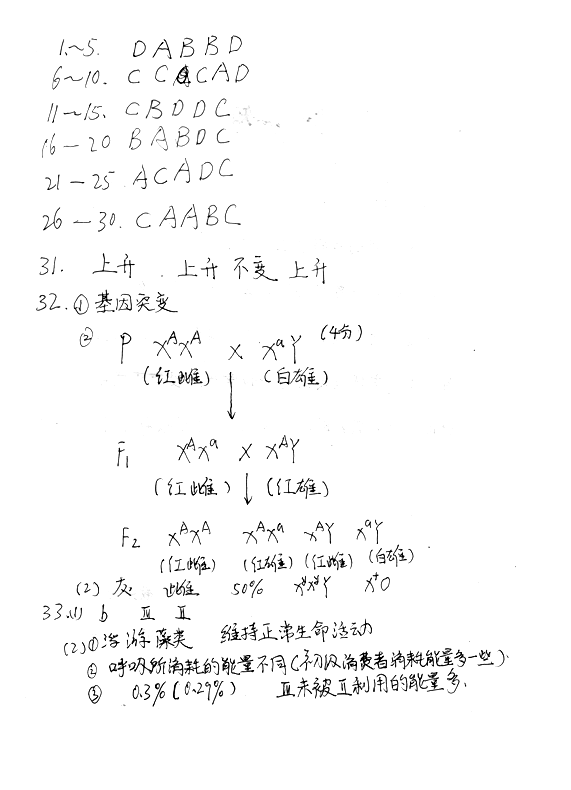 1~5. D A B B D
6~10. C C A C A D
11~15. C B D D C
16-20 B A B D C
21-25 A C A D C
26-30. C A A B C
31. 上升 . 上升 不变 上升
32. ① 基因突变
② P XᴬXᴬ × XᵃY (4分)
(红雌) (白雄)
F₁ XᴬXᵃ × XᴬY
(红雌) (红雄)
F₂ XᴬXᴬ XᴬXᵃ XᴬY XᵃY
(红雌) (红雄) (红雌) (白雄)
(2) 灰 雌 50% XʸXʸY X⁺O
33.(1) b Ⅱ Ⅱ
(2)① 浮游藻类 维持正常生命活动
② 呼吸所消耗的能量不同(初级消费者消耗能量多一些).
③ 0.3%(0.29%) Ⅱ未被Ⅱ利用的能量多.